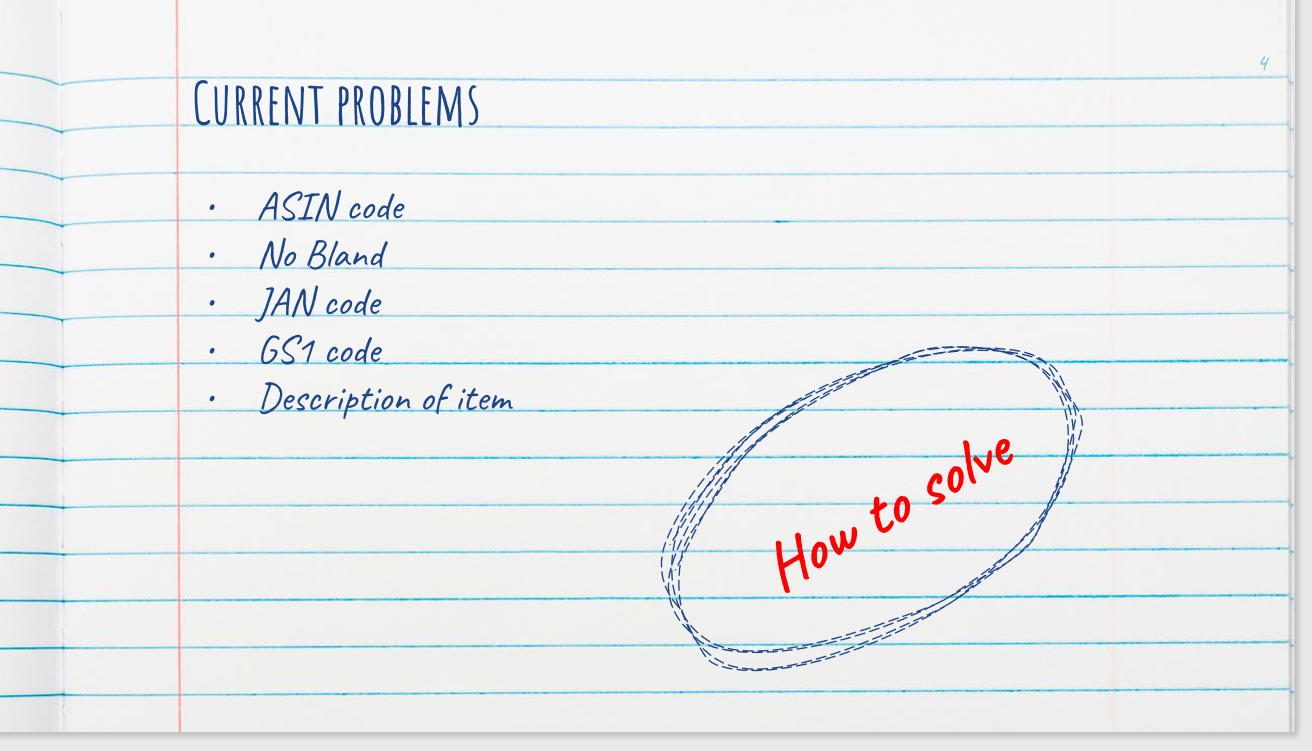 4
CURRENT PROBLEMS
• ASIN code
• No Bland
• JAN code
• GS1 code
• Description of item
How to solve